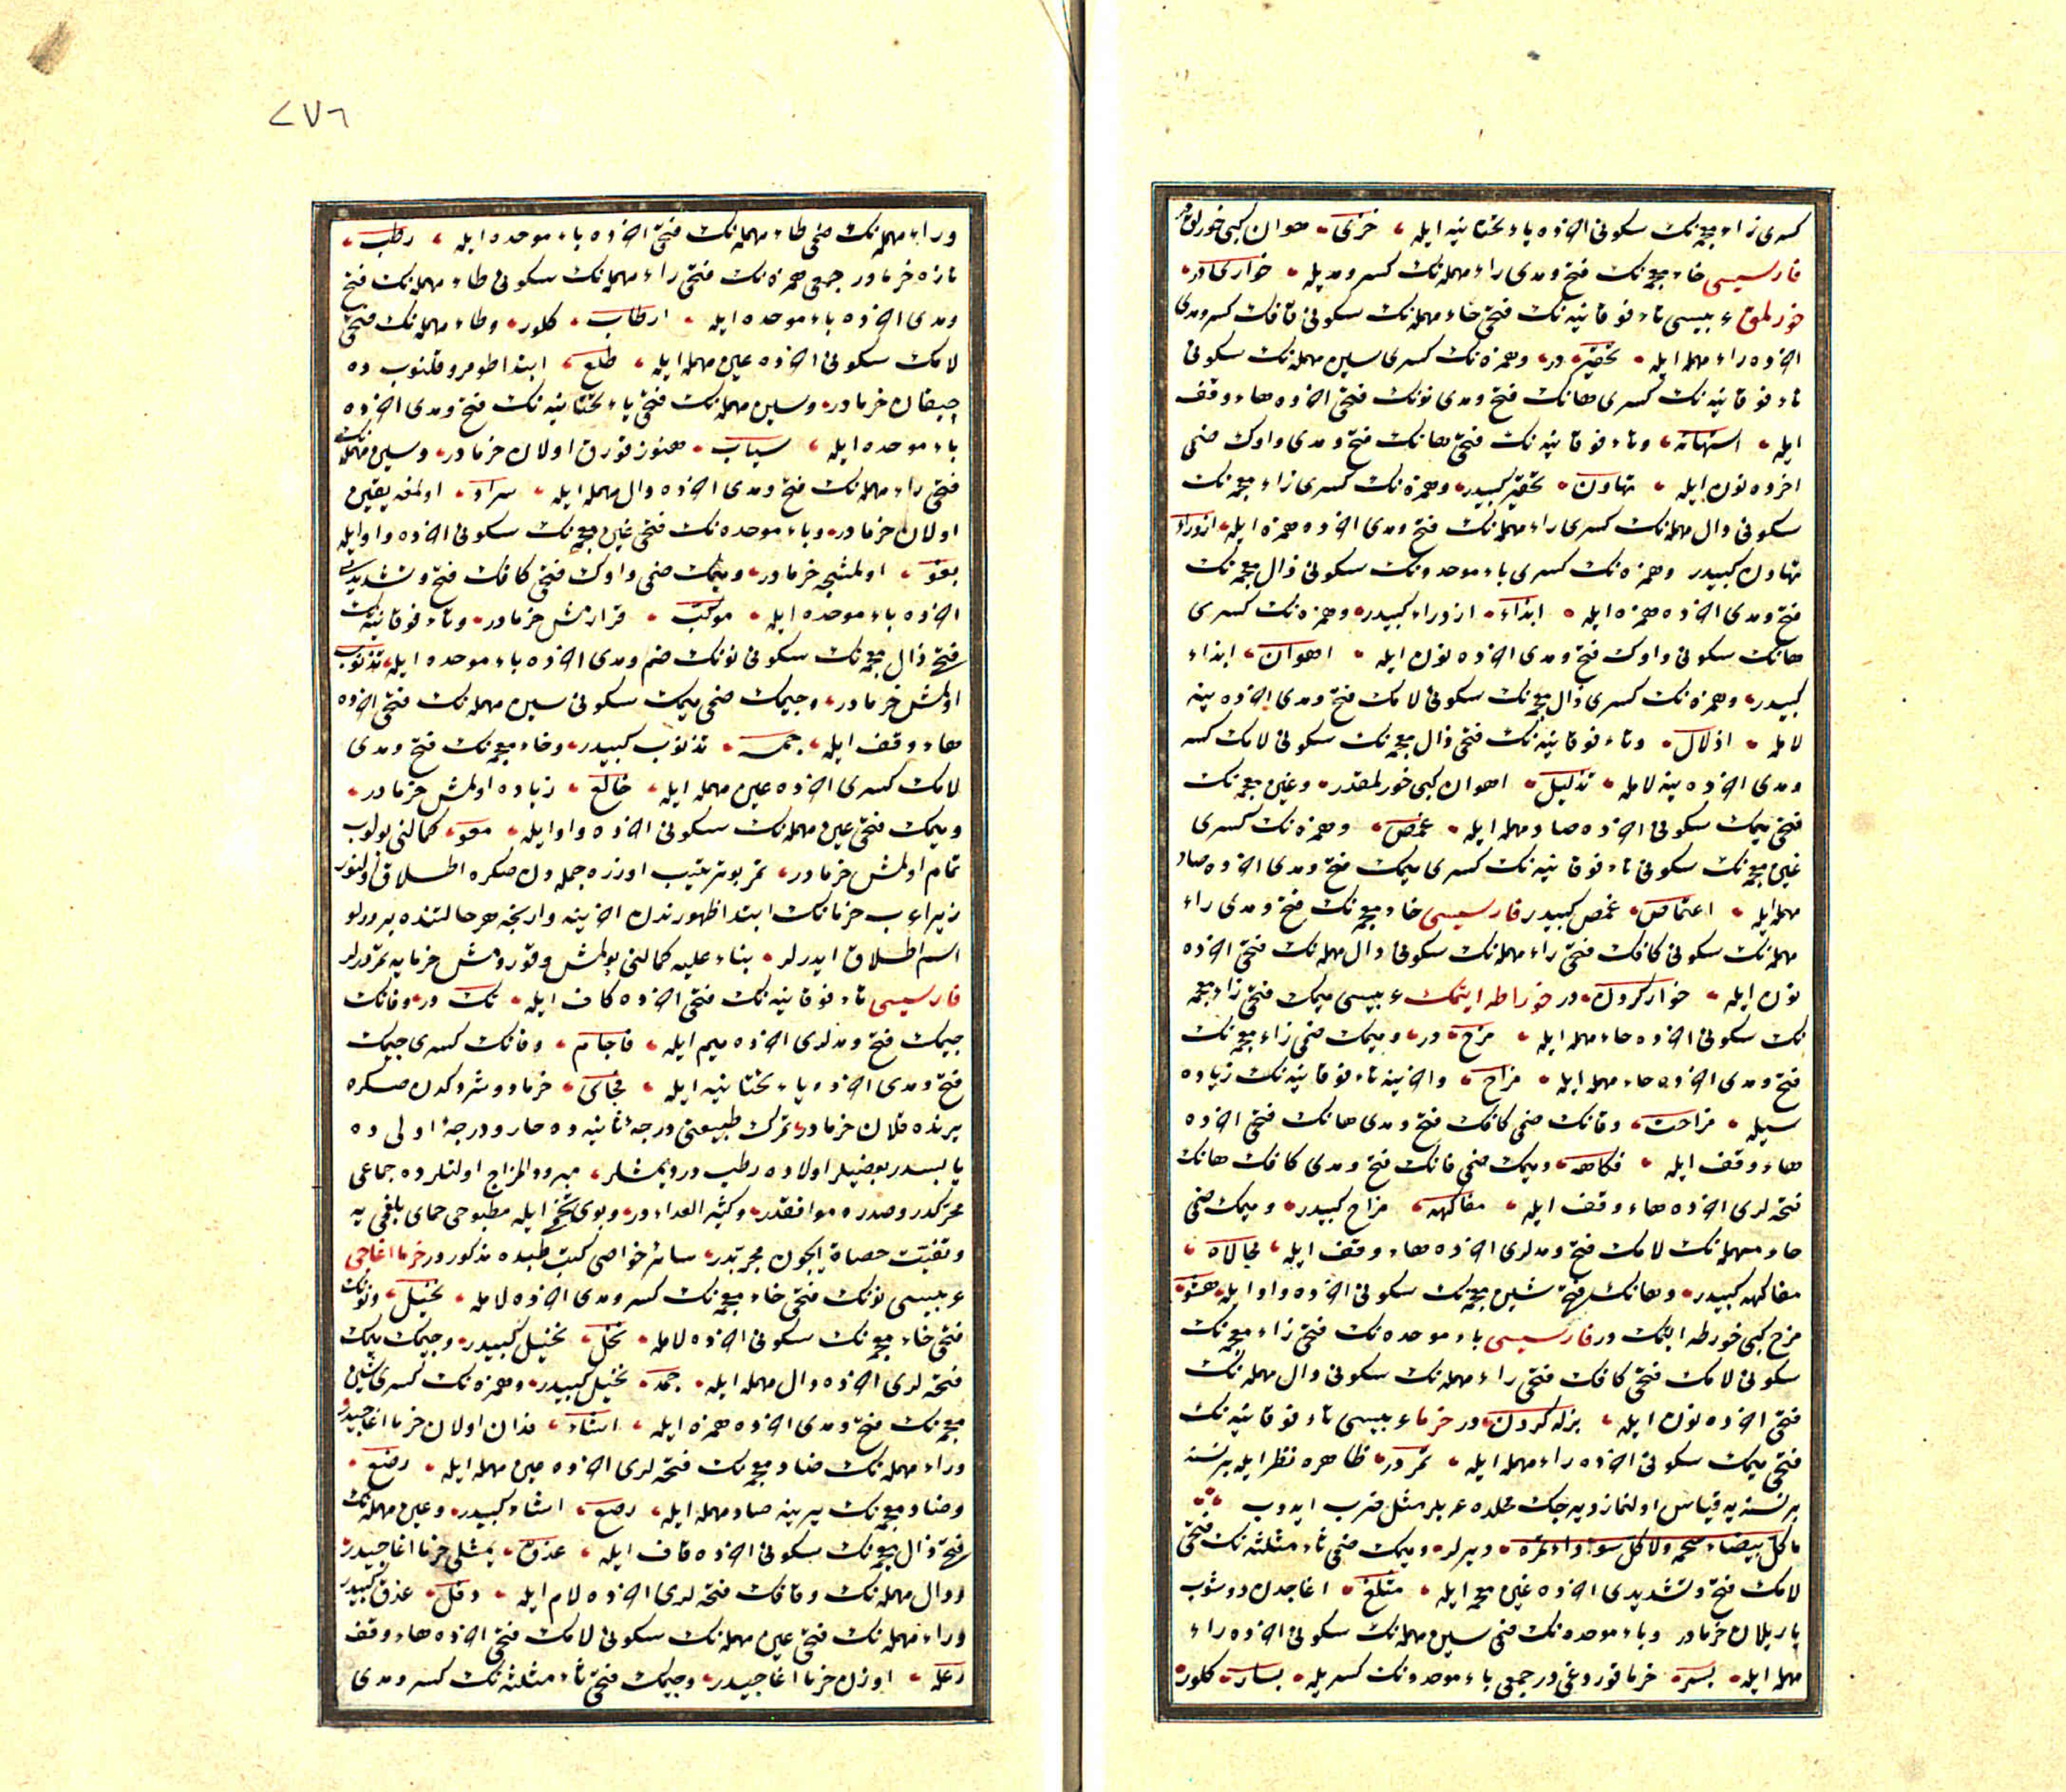 كسرى زاء معجمه‌نك سكونى اخرده ياء تحتانيه ايله خزى هوان كبى خورلق
فارسيسى خاء معجمه‌نك فتح ومدى راء مهمله‌نك كسر ومديله خوارى در
خورلمق عربيسى تاء فوقانيه‌نك فتحى حاء مهمله‌نك سكونى قافك كسر ومدى
اخرده راء مهمله ايله تحقير در وهمزه‌نك كسرى سين مهمله‌نك سكونى
تاء فوقانيه‌نك كسرى هانك فتح ومدى نونك فتحى اخرده هاء وقف
ايله استهانه وتاء فوقانيه‌نك فتحى هانك فتح ومدى واوك ضمى
اخرده نون ايله تهاون تحقير كبيدر وهمزه‌نك كسرى زاء معجمه‌نك
سكونى دال مهمله‌نك كسرى راء مهمله‌نك فتح ومدى اخرده همزه ايله ازدراء
تهاون كبيدر وهمزه‌نك كسرى باء موحده‌نك سكونى ذال معجمه‌نك
فتح ومدى اخرده همزه ايله ابذاء ازدراء كبيدر وهمزه‌نك كسرى
هانك سكونى واوك فتح ومدى اخرده نون ايله اهوان ابذاء
كبيدر وهمزه‌نك كسرى ذال معجمه‌نك سكونى لامك فتح ومدى اخرده ينه
لامله اذلال وتاء فوقانيه‌نك فتحى ذال معجمه‌نك سكونى لامك كسر
ومدى اخرده ينه لامله تذليل اهوان كبى خورلمقدر وغين معجمه‌نك
فتحى ميمك سكونى اخرده صاد مهمله ايله غمص وهمزه‌نك كسرى
غين معجمه‌نك سكونى تاء فوقانيه‌نك كسرى ميمك فتح ومدى اخرده صاد
مهمله ايله اغتماص غمص كبيدر فارسيسى خاء معجمه‌نك فتح ومدى راء
مهمله‌نك سكونى كافك فتحى راء مهمله‌نك سكونى دال مهمله‌نك فتحى اخرده
نون ايله خوار كردن در خوراطه ايتمك عربيسى ميمك فتحى زاء معجمه
نك سكونى اخرده حاء مهمله ايله مزح در وميمك ضمى زاء معجمه‌نك
فتح ومدى اخرده حاء مهمله ايله مزاح واخرينه تاء فوقانيه‌نك زياده
سيله مزاحت وفانك ضمى كافك فتح ومدى هانك فتحى اخرده
هاء وقف ايله فكاهه وميمك ضمى فانك فتح ومدى كافك هانك
فتحه‌لرى اخرده هاء وقف ايله مفاكهه مزاح كبيدر وميمك ضمى
حاء مهمله‌نك لامك فتح ومدلرى اخرده هاء وقف ايله محالاه
مفاكهه كبيدر وهانك فتحى شين معجمه‌نك سكونى اخرده واو ايله هشو
مزح كبى خورطه ايتمك در فارسيسى باء موحده‌نك فتحى زاء معجمه‌نك
سكونى لامك فتحى كافك فتحى راء مهمله‌نك سكونى دال مهمله‌نك
فتحى اخرده نون ايله بزله كردن در خرما عربيسى تاء فوقانيه‌نك
فتحى ميمك سكونى اخرده راء مهمله ايله تمر در ظاهره نظر ايله برنسنه
برنسنه‌يه قياس اولنماز ديه‌جك محلده عربلر مثل ضرب ايدوب
ما كل بيضاء شحمه ولا كل سوداء تمره ديرلر وميمك ضمى ثاء مثلثه‌نك فتحى
لامك فتح وتشديدى اخرده غين معجمه ايله مثلغ اغاجدن دوشوب
ياريلان خرمادر وباء موحده‌نك ضمى سين مهمله‌نك سكونى اخرده راء
مهمله ايله بسر خرما قوروغى در جمعى باء موحده‌نك كسريله بسار كلور
٢٧٦
وراء مهمله‌نك ضمى طاء مهمله‌نك فتحى اخرده باء موحده ايله رطب
تازه خرمادر جمعى همزه‌نك فتحى راء مهمله‌نك سكونى طاء مهمله‌نك فتح
ومدى اخرده باء موحده ايله ارطاب كلور وطاء مهمله‌نك فتحى
لامك سكونى اخرده عين مهمله ايله طلع ابتدا طومروقلنوب ده
چيقان خرمادر وسين مهمله‌نك فتحى ياء تحتانيه‌نك فتح ومدى اخرده
باء موحده ايله سياب هنوز قورق اولان خرمادر وسين مهمله‌نك
فتحى راء مهمله‌نك فتح ومدى اخرده دال مهمله ايله سراد اولمغه يقين
اولان خرمادر وباء موحده‌نك فتحى غين معجمه‌نك سكونى اخرده واو ايله
بغو اولمشجه خرمادر وميمك ضمى واوك فتحى كافك فتح وتشديدى
اخرده باء موحده ايله موكب قرارمش خرمادر وتاء فوقانيه‌نك
فتحى ذال معجمه‌نك سكونى نونك ضم ومدى اخرده باء موحده ايله تذنوب
اولمش خرمادر وجيمك ضمى ميمك سكونى سين مهمله‌نك فتحى اخرده
هاء وقف ايله جمسه تذنوب كبيدر وخاء معجمه‌نك فتح ومدى
لامك كسرى اخرده عين مهمله ايله خالع زياده اولمش خرمادر
وميمك فتحى عين مهمله‌نك سكونى اخرده واو ايله معو كمالنى بولوب
تمام اولمش خرمادر تمر بو ترتيب اوزره جمله‌دن صكره اطلاق اولنور
زيرا عرب خرمانك ابتدا ظهورندن اخرينه وارنجه هر حالتنده بر درلو
اسم اطلاق ايدرلر بناء عليه كمالنى بولمش وقورومش خرمايه تمر ديرلر
فارسيسى تاء فوقانيه‌نك فتحى اخرده كاف ايله تك در وفانك
جيمك فتح ومدلرى اخرده ميم ايله فاجام وفانك كسرى جيمك
فتح ومدى اخرده ياء تحتانيه ايله فجاى خرما دوشركدن صكره
يرنده قلان خرمادر تمرك طبيعتى درجهٔ ثانيه ده حار ودرجهٔ اولى ده
يابسدر بعضيلر اولاده رطب در ديمشلر مبرود المزاج اولنلرده جماعى
محركدر وصدره موافقدر وكثير الغداء در وبوى تخم ايله مطبوخى حماى بلغمى يه
وتفتيت حصاة ايچون مجربدر سائر خواصى كتب طبده مذكوردر خرما اغاجى
عربيسى نونك فتحى خاء معجمه‌نك كسر ومدى اخرده لامله نخيل ونونك
فتحى خاء معجمه‌نك سكونى اخرده لامله نخل نخيل كبيدر وجيمك ميمك
فتحه‌لرى اخرده دال مهمله ايله جمد نخيل كبيدر وهمزه‌نك كسرى شين
معجمه‌نك فتح ومدى اخرده همزه ايله اشاء فدان اولان خرما اغاجيدر
وراء مهمله‌نك ضاد معجمه‌نك فتحه‌لرى اخرده عين مهمله ايله رضع
وضاد معجمه‌نك يرينه صاد مهمله ايله رصع اشاء كبيدر وعين مهمله‌نك
فتحى ذال معجمه‌نك سكونى اخرده قاف ايله عذق يمشلى خرما اغاجيدر
ودال مهمله‌نك وقافك فتحه‌لرى اخرده لام ايله دقل عذق كبيدر
وراء مهمله‌نك فتحى عين مهمله‌نك سكونى لامك فتحى اخرده هاء وقف
رعله اوزن خرما اغاجيدر وجيمك فتحى ثاء مثلثه‌نك كسر ومدى